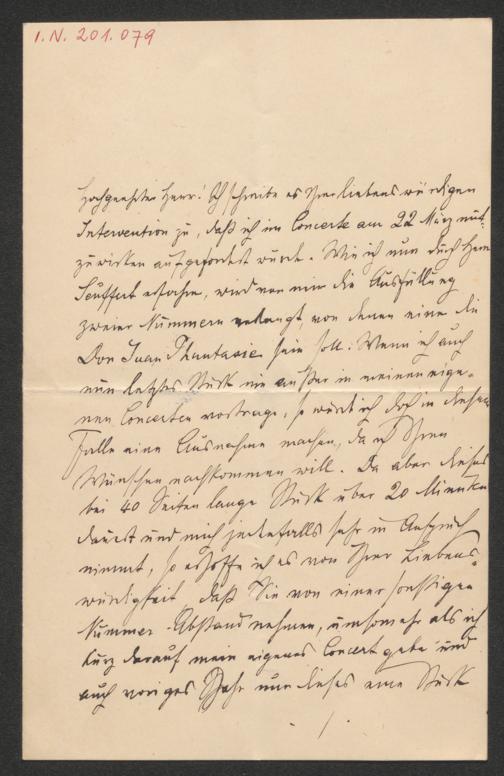 I. N. 201.079
Hochgeehrter Herr! Ich schreibe es Ihrer liebenswürdigen
Intervention zu, daß ich im Concerte am 22 März mit-
zuwirken aufgefordert wurde. Wie ich nun durch Herrn
Seuffert erfahre, wird von mir die Ausfüllung
zweier Nummern verlangt, von denen eine die
Don Juan Phantasie sein soll. Wenn ich auch
nun letztes Stück nie außer in meinen eige-
nen Concerten vortrage, so würde ich doch in diesem
Falle eine Ausnahme machen, da ich Ihren
Wünschen nachkommen will. Da aber dieses
bei 40 Seiten lange Stück über 20 Minuten
dauert und mich jedenfalls sehr in Anspruch
nimmt, so erhoffe ich es von Ihrer Liebens-
würdigkeit daß Sie von einer sonstigen
Nummer Abstand nehmen, umsomehr als ich
kurz darauf mein eigenes Concert gebe und
auch voriges Jahr nur dieses eine Stück
./.